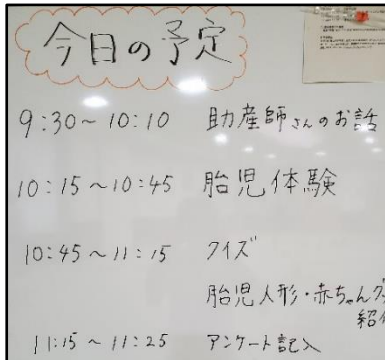 今日の予定
9:30～10:10 助産師さんのお話
10:15～10:45 胎児体験
10:45～11:15 クイズ
胎児人形・赤ちゃん
紹
11:15～11:25 アンケート記入